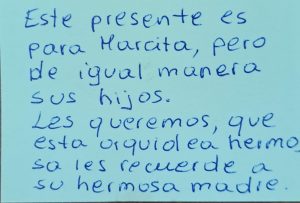 Este presente es
para Marcita, pero
de igual manera
sus hijos.
Les queremos, que
esta orquidea hermo
sa les recuerde a
su hermosa madre.